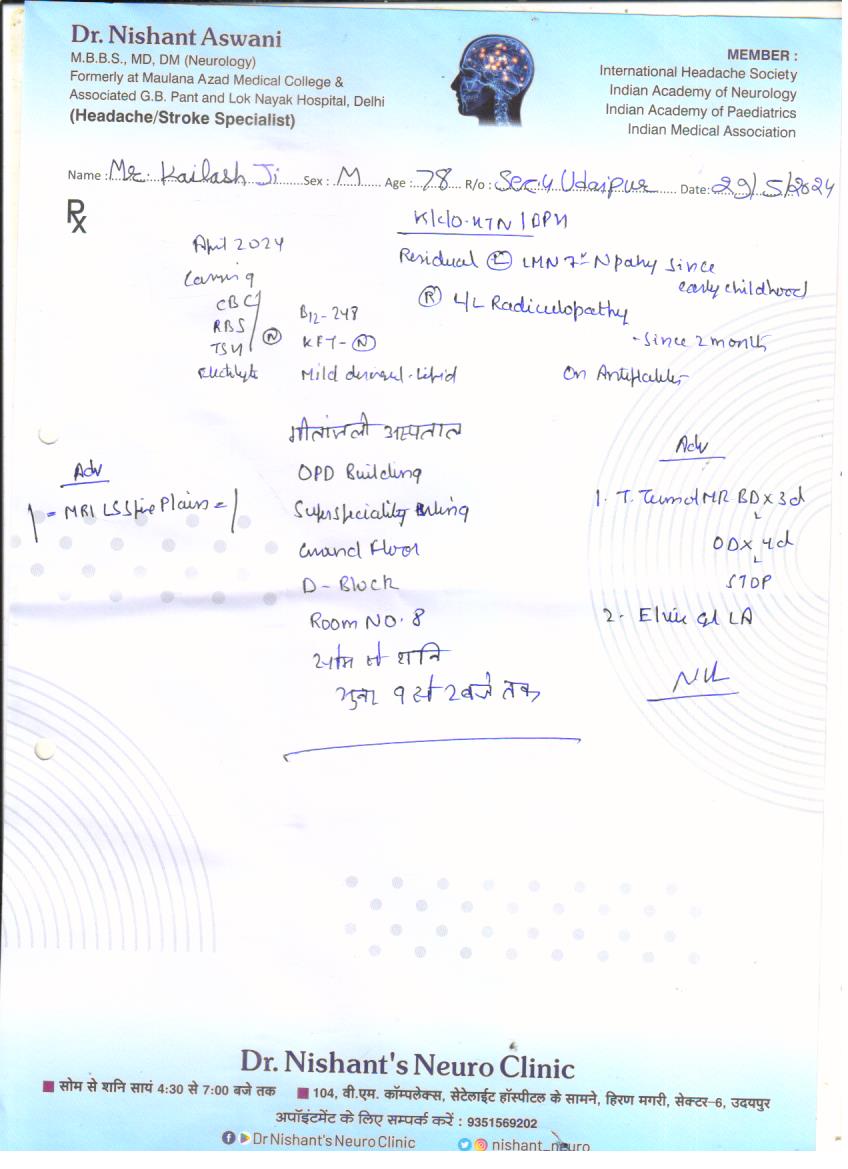 Dr. Nishant Aswani
M.B.B.S., MD, DM (Neurology)
Formerly at Maulana Azad Medical College &
Associated G.B. Pant and Lok Nayak Hospital, Delhi
(Headache/Stroke Specialist)
MEMBER :
International Headache Society
Indian Academy of Neurology
Indian Academy of Paediatrics
Indian Medical Association
Name : Mr. Kailash Ji Sex : M Age : 78 R/o : Sec. 4 Udaipur Date: 29/5/2024
Rx
K/c/o - HTN /
Residual (L) LMN 7th N palsy since
early childhood
(R) L/L Radiculopathy
- since 2 month
On
April 2024
CBC
RBS
TSH
(N)
B12 - 248
KFT - (N)
Mild Lipid
गीतांजली अस्पताल
OPD Building
Superspeciality
Floor
D - Block
Room NO. 8
सोम से शनि
9 से 2 बजे तक
Adv
= MRI LS Spine Plain =
Adv
1. T. MR BD x 3d
OD x 4d
STOP
2. LA
Dr. Nishant's Neuro Clinic
सोम से शनि सायं 4:30 से 7:00 बजे तक 104, वी.एम. कॉम्पलेक्स, सेटेलाईट हॉस्पीटल के सामने, हिरण मगरी, सेक्टर-6, उदयपुर
अपॉइंटमेंट के लिए सम्पर्क करें : 9351569202
Dr Nishant's Neuro Clinic nishant_neuro